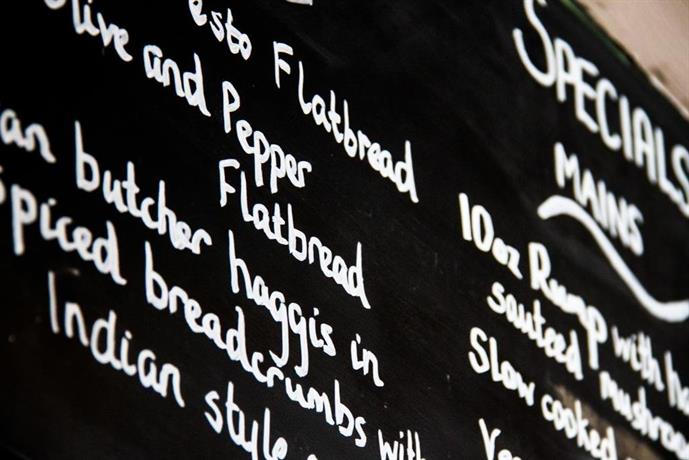 esto Flatbread
Olive and Pepper
Flatbread
butcher haggis in
Spiced breadcrumbs with
Indian style
Specials
MAINS
10oz Rump with
sauteed
Slow cooked